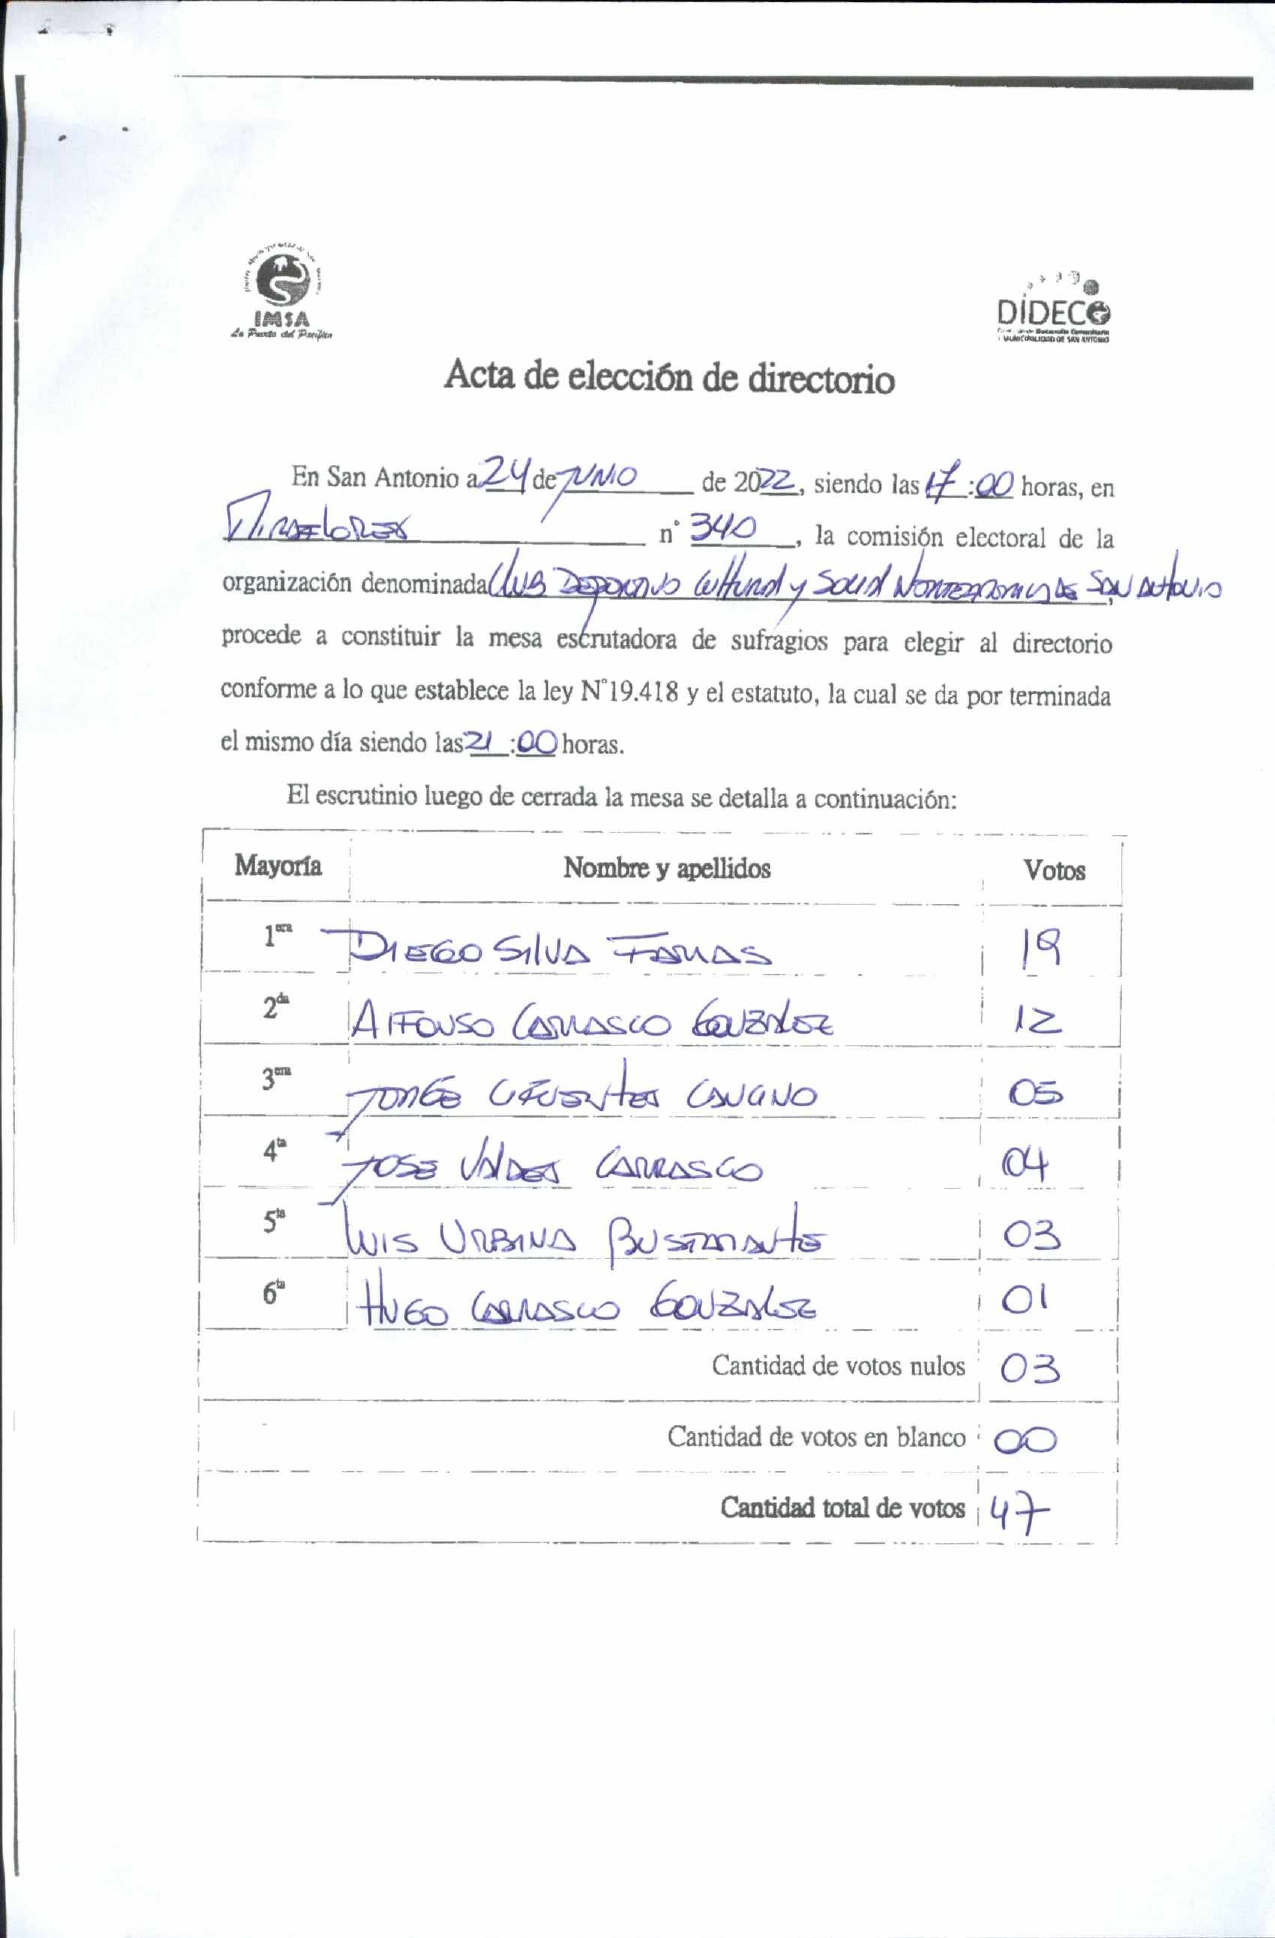 IMSA
La Puerta del Pacífico
DIDECO
MUNICIPALIDAD DE SAN ANTONIO
Acta de elección de directorio
En San Antonio a 24 de JUNIO de 2022, siendo las 17:00 horas, en
MIRAFLORES n° 340, la comisión electoral de la
organización denominada Club Deportivo Cultural y Social Norteamerica de San Antonio,
procede a constituir la mesa escrutadora de sufragios para elegir al directorio
conforme a lo que establece la ley N°19.418 y el estatuto, la cual se da por terminada
el mismo día siendo las 21:00 horas.
El escrutinio luego de cerrada la mesa se detalla a continuación:
Mayoría Nombre y apellidos Votos
1era DIEGO SILVA FARIAS 19
2da ALFONSO CARRASCO GONZALEZ 12
3era JORGE CIFUENTES 05
4ta JOSE VALDES CARRASCO 04
5ta LUIS URBINA BUSTAMANTE 03
6ta HUGO CARRASCO GONZALEZ 01
Cantidad de votos nulos 03
Cantidad de votos en blanco 00
Cantidad total de votos 47